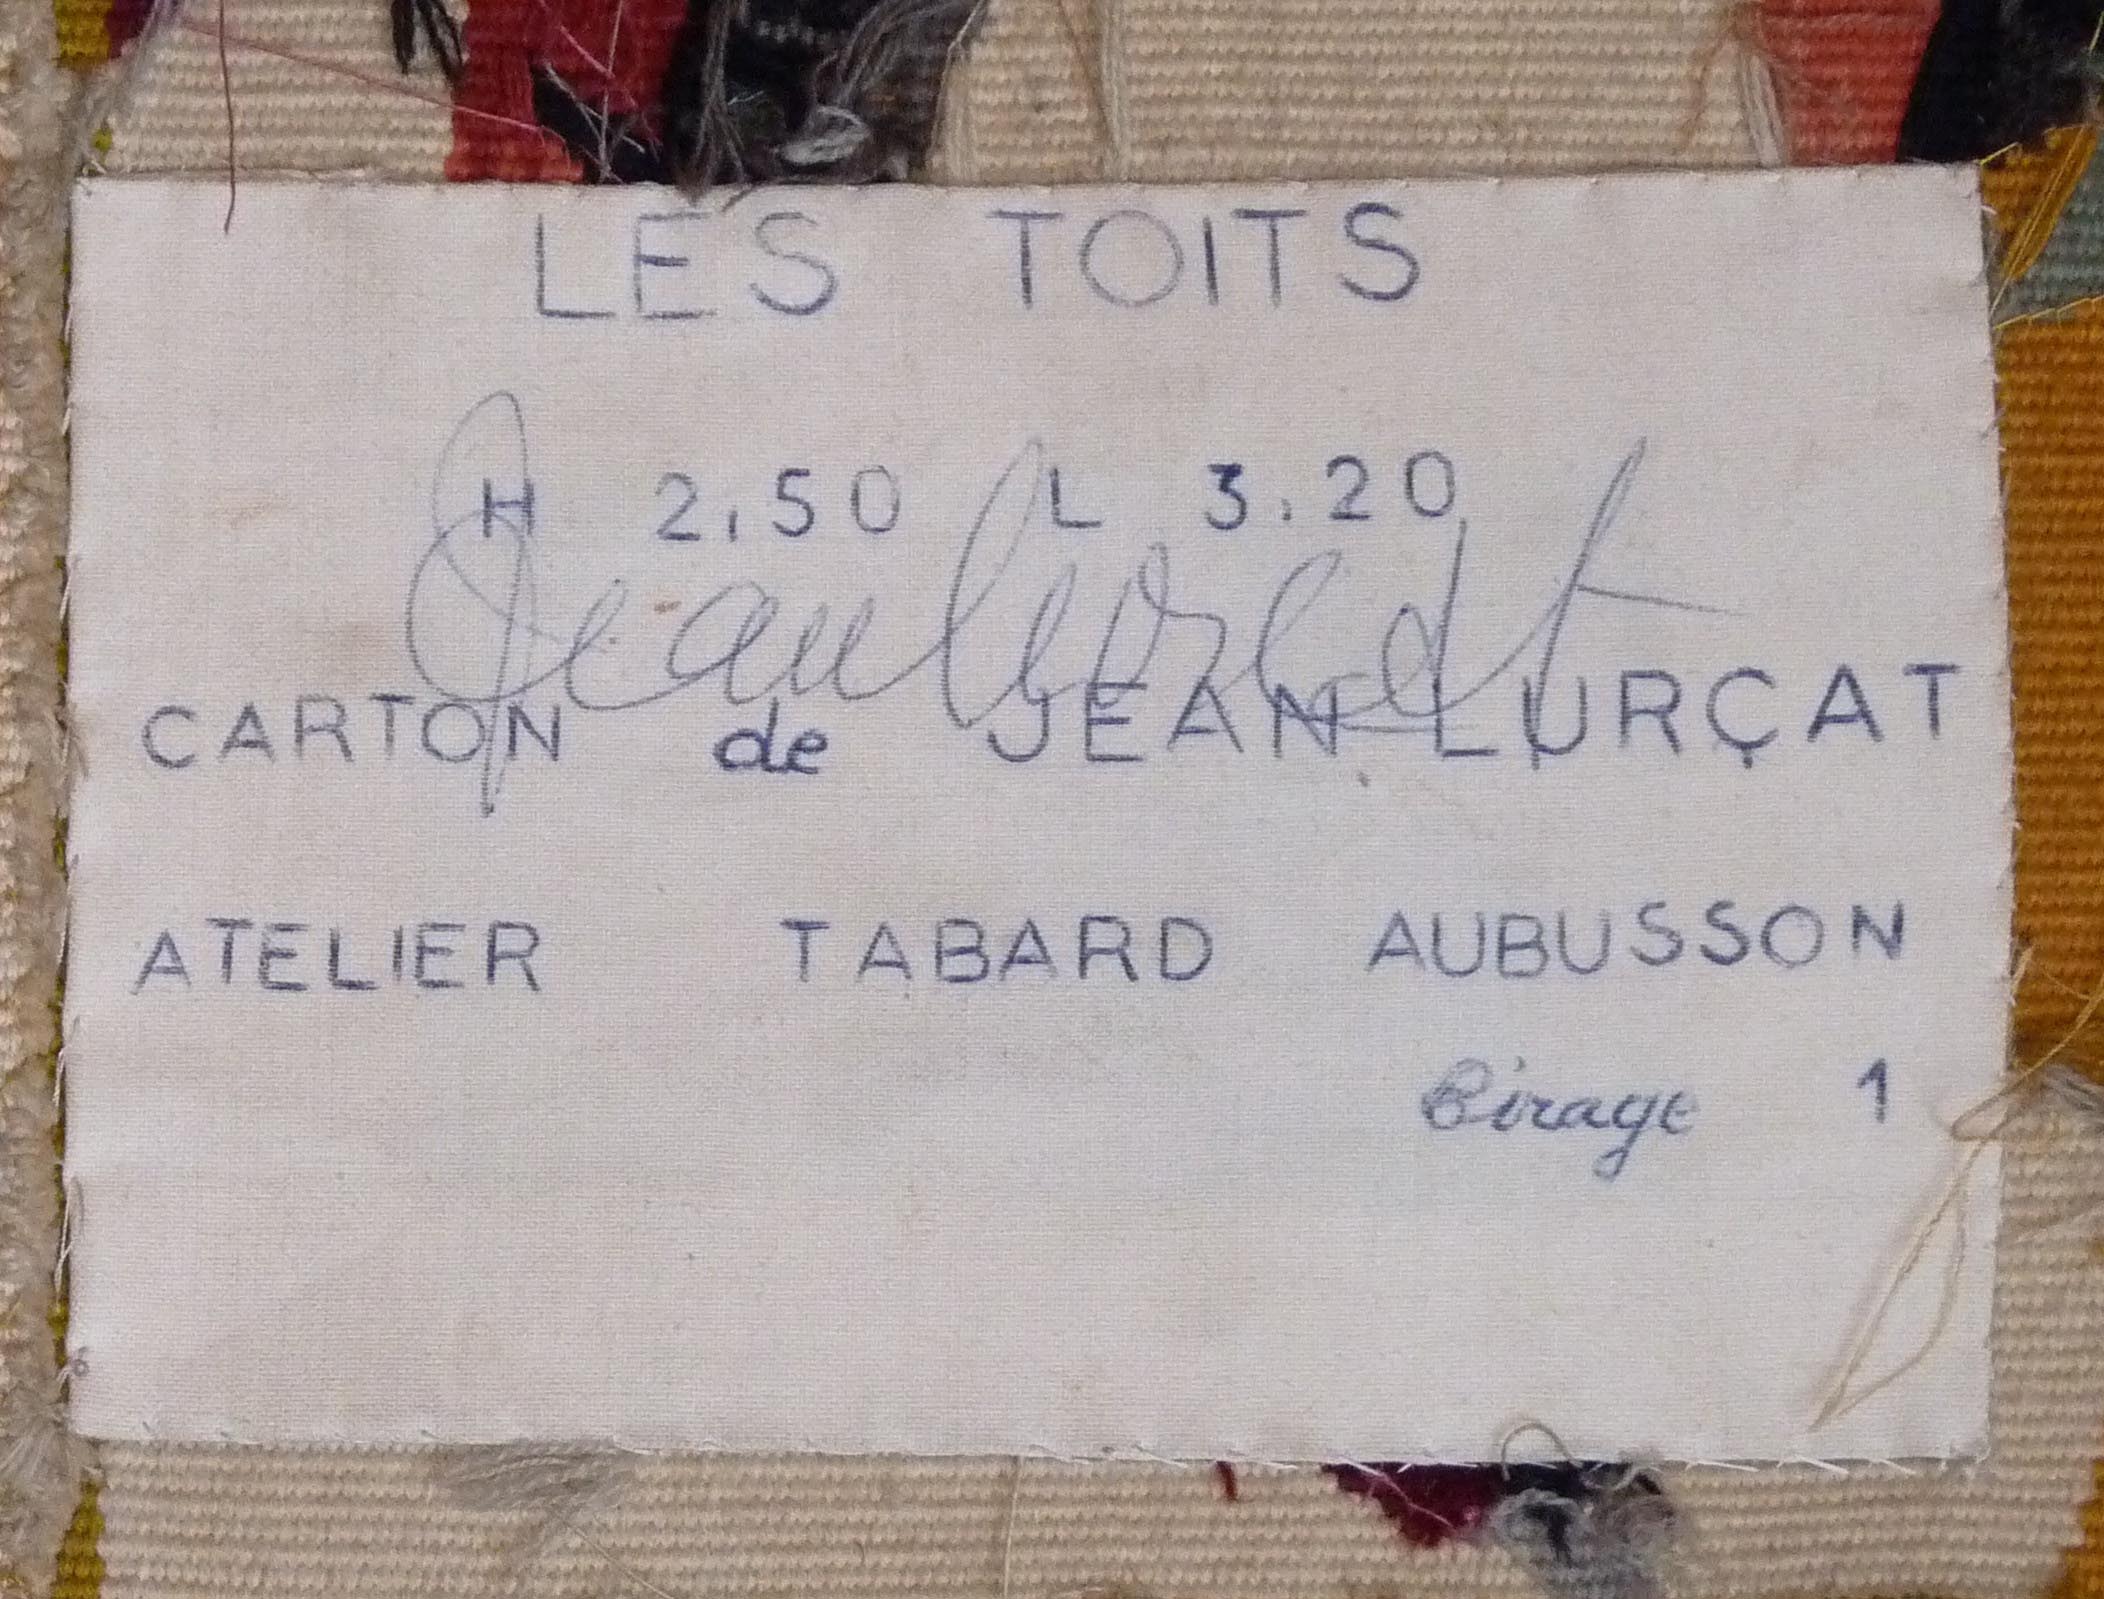 LES TOITS
H 2,50 L 3.20
Jean Lurçat
CARTON de JEAN LURÇAT
ATELIER TABARD AUBUSSON
tirage 1